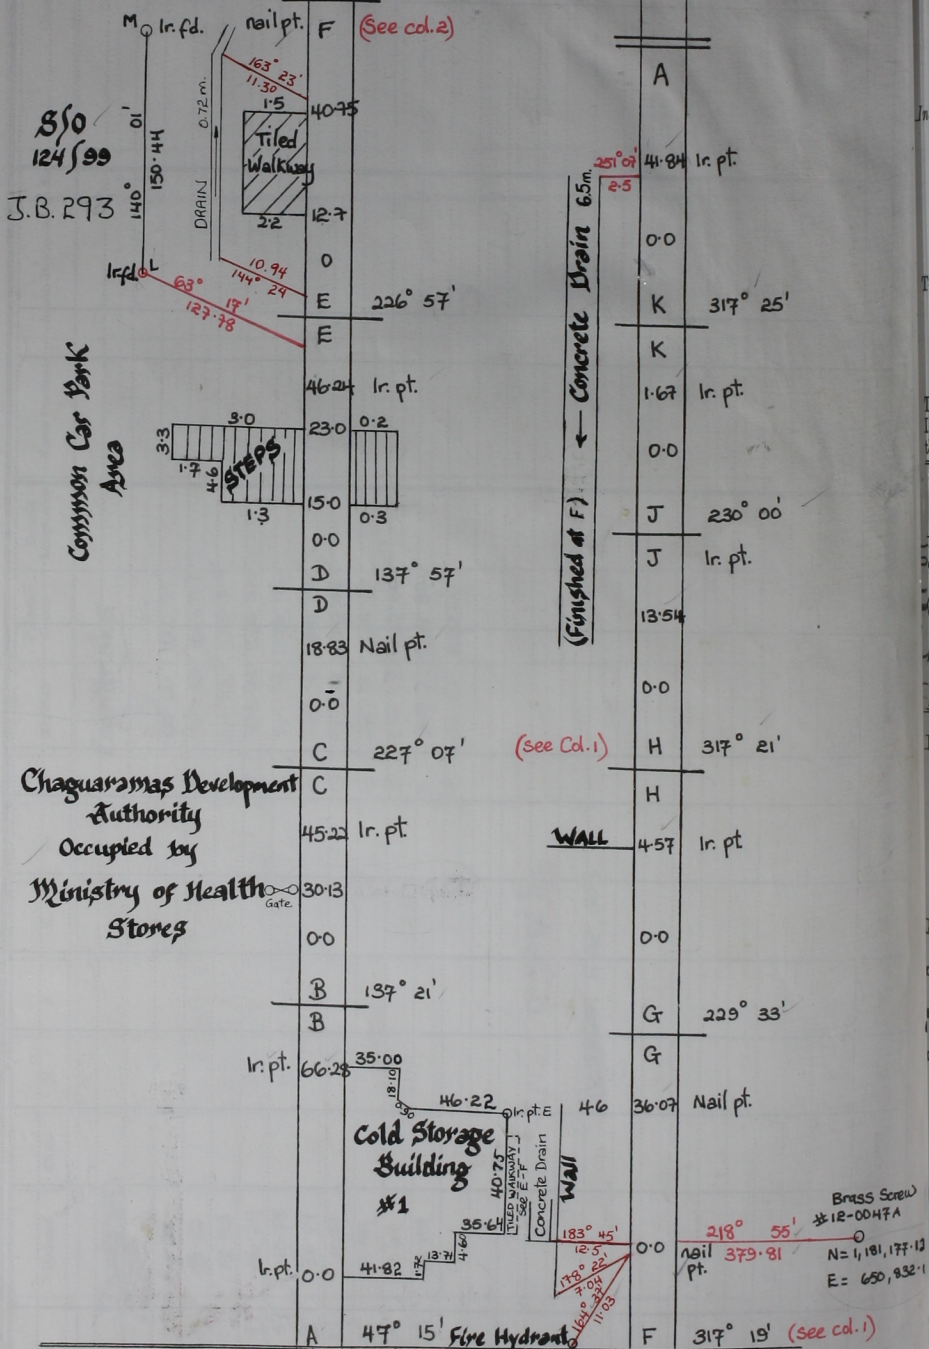 M Ir. fd. nail pt. F (See col.2)
163° 23'
11.30
1.5 40.75
S/O
124/99
J.B. 293
140° 01'
150.44
DRAIN 0.72 m.
Tiled
Walkway
2.2 12.7
0
Ir.fd. L
10.94
144° 24
63° 17'
127.78
E 226° 57'
E
46.24 Ir. pt.
Common Car Park
Area
3.0 23.0 0.2
3.3
1.7
4.6
STEPS
1.3 15.0 0.3
0.0
D 137° 57'
D
18.83 Nail pt.
0.0
C 227° 07'
C
Chaguaramas Development
Authority
Occupied by
Ministry of Health
Stores
45.22 Ir. pt
Gate
30.13
0.0
B 137° 21'
B
Ir. pt. 66.28 35.00
18.10
0.90
46.22
Ir. pt. E
Cold Storage
Building
#1
40.75
TILED WALKWAY
SEE E-F
Concrete Drain
Wall
35.64
4.60
13.71
1.72
Ir. pt. 0.0 41.82
A 47° 15' Fire Hydrant
A
251° 07'
2.5
41.84 Ir. pt.
(Finished at F) ← Concrete Drain 6.5m.
0.0
K 317° 25'
K
1.67 Ir. pt.
0.0
J 230° 00'
J Ir. pt.
13.54
0.0
(see Col.1) H 317° 21'
H
WALL 4.57 Ir. pt
0.0
G 229° 33'
G
4.6 36.07 Nail pt.
183° 45'
12.5
178° 22'
7.04
164° 37'
11.03
0.0 nail
pt.
218° 55'
379.81
Brass Screw
#12-0047A
N= 1,181,177.12
E= 650,832.1
F 317° 19' (see col.1)